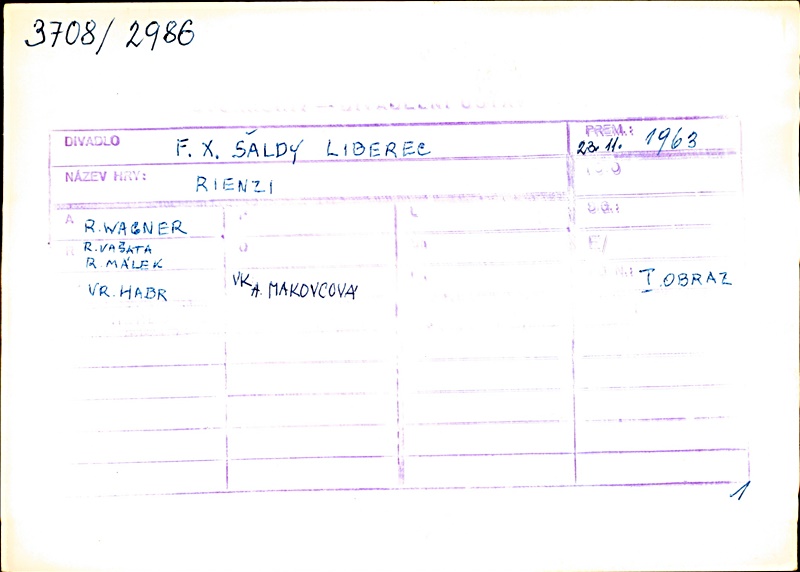 3708/ 2986
DIVADLO F. X. ŠALDY LIBEREC
PREM.: 23. 11. 1963
NÁZEV HRY: RIENZI
A R. WAGNER
R R. VAŠATA
R. MÁLEK
VR. HABR
VK A. MAKOVCOVÁ
I. OBRAZ
1